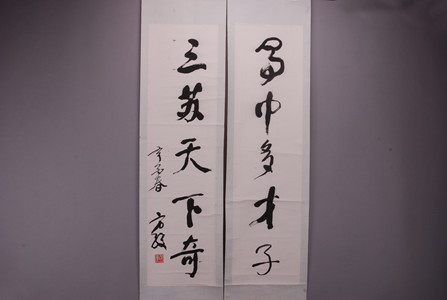 蜀中多才子
三苏天下奇
春
方毅